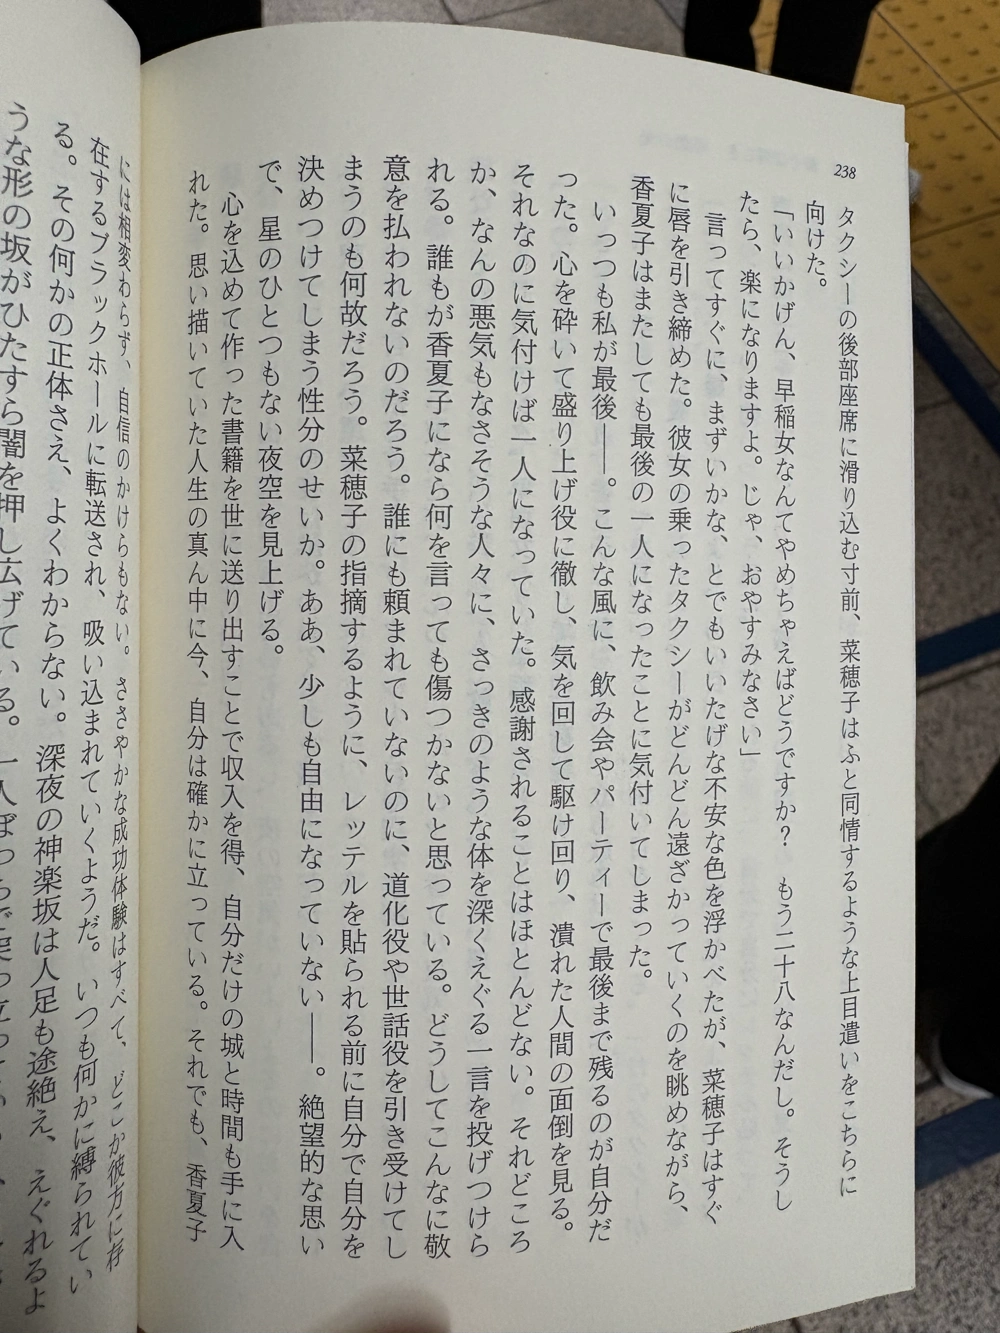 238
タクシーの後部座席に滑り込む寸前、菜穂子はふと同情するような上目遣いをこちらに
向けた。
「いいかげん、早稲女なんてやめちゃえばどうですか？　もう二十八なんだし。そうし
たら、楽になりますよ。じゃ、おやすみなさい」
言ってすぐに、まずいかな、とでもいいたげな不安な色を浮かべたが、菜穂子はすぐ
に唇を引き締めた。彼女の乗ったタクシーがどんどん遠ざかっていくのを眺めながら、
香夏子はまたしても最後の一人になったことに気付いてしまった。
いっつも私が最後――。こんな風に、飲み会やパーティーで最後まで残るのが自分だ
った。心を砕いて盛り上げ役に徹し、気を回して駆け回り、潰れた人間の面倒を見る。
それなのに気付けば一人になっていた。感謝されることはほとんどない。それどころ
か、なんの悪気もなさそうな人々に、さっきのような体を深くえぐる一言を投げつけら
れる。誰もが香夏子になら何を言っても傷つかないと思っている。どうしてこんなに敬
意を払われないのだろう。誰にも頼まれていないのに、道化役や世話役を引き受けてし
まうのも何故だろう。菜穂子の指摘するように、レッテルを貼られる前に自分で自分を
決めつけてしまう性分のせいか。ああ、少しも自由になっていない――。絶望的な思い
で、星のひとつもない夜空を見上げる。
心を込めて作った書籍を世に送り出すことで収入を得、自分だけの城と時間も手に入
れた。思い描いていた人生の真ん中に今、自分は確かに立っている。それでも、香夏子
には相変わらず、自信のかけらもない。ささやかな成功体験はすべて、どこか彼方に存
在するブラックホールに転送され、吸い込まれていくようだ。いつも何かに縛られてい
る。その何かの正体さえ、よくわからない。深夜の神楽坂は人足も途絶え、えぐれるよ
うな形の坂がひたすら闇を押し広げている。一人ぼっちで突っ立って